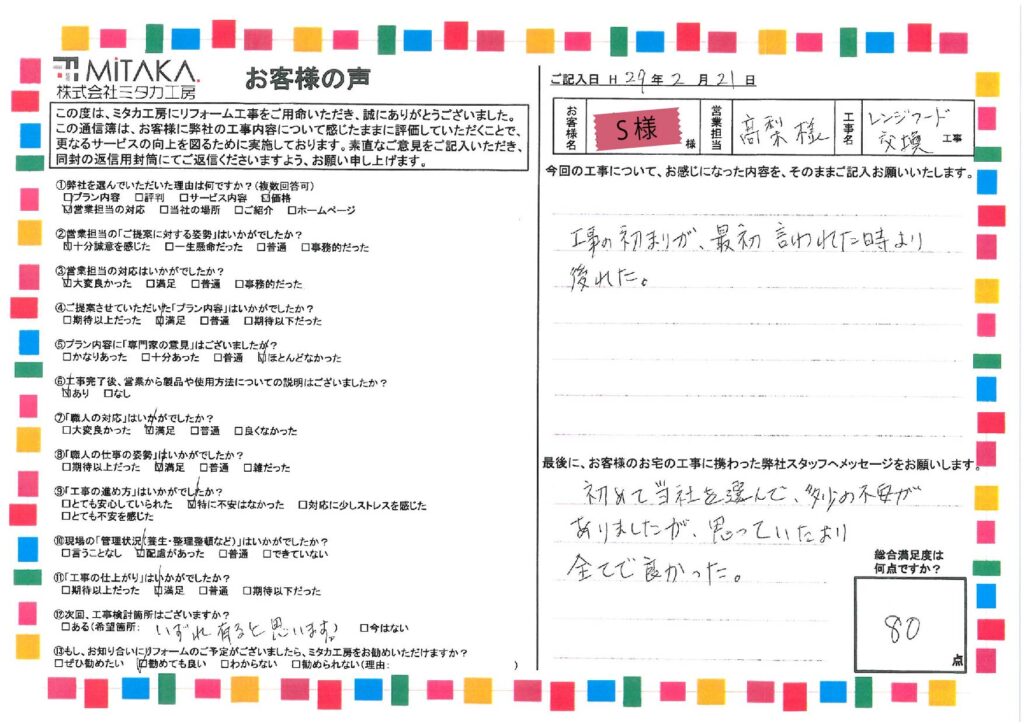 MiTAKA.
株式会社ミタカ工房
お客様の声
この度は、ミタカ工房にリフォーム工事をご用命いただき、誠にありがとうございました。
この通信簿は、お客様に弊社の工事内容について感じたままに評価していただくことで、
更なるサービスの向上を図るために実施しております。素直なご意見をご記入いただき、
同封の返信用封筒にてご返信くださいますよう、お願い申し上げます。
①弊社を選んでいただいた理由は何ですか?(複数回答可)
□プラン内容 □評判 □サービス内容 ☑価格
☑営業担当の対応 □当社の場所 □ご紹介 □ホームページ
②営業担当の「ご提案に対する姿勢」はいかがでしたか?
☑十分誠意を感じた □一生懸命だった □普通 □事務的だった
③営業担当の対応はいかがでしたか?
☑大変良かった □満足 □普通 □事務的だった
④ご提案させていただいた「プラン内容」はいかがでしたか?
□期待以上だった ☑満足 □普通 □期待以下だった
⑤プラン内容に「専門家の意見」はございましたか?
□かなりあった □十分あった □普通 ☑ほとんどなかった
⑥工事完了後、営業から製品や使用方法についての説明はございましたか?
☑あり □なし
⑦「職人の対応」はいかがでしたか?
□大変良かった ☑満足 □普通 □良くなかった
⑧「職人の仕事の姿勢」はいかがでしたか?
□期待以上だった ☑満足 □普通 □雑だった
⑨「工事の進め方」はいかがでしたか?
□とても安心していられた ☑特に不安はなかった □対応に少しストレスを感じた
□とても不安を感じた
⑩現場の「管理状況(養生・整理整頓など)」はいかがでしたか?
□言うことなし ☑配慮があった □普通 □できていない
⑪「工事の仕上がり」はいかがでしたか?
□期待以上だった ☑満足 □普通 □期待以下だった
⑫次回、工事検討箇所はございますか?
□ある(希望箇所: いずれ有ると思います。) □今はない
⑬もし、お知り合いにリフォームのご予定がございましたら、ミタカ工房をお勧めいただけますか?
□ぜひ勧めたい ☑勧めても良い □わからない □勧められない(理由: )
ご記入日 H 29 年 2 月 21 日
お客様名 S様 様 営業担当 高梨様 工事名 レンジフード交換 工事
今回の工事について、お感じになった内容を、そのままご記入お願いいたします。
工事の初まりが、最初言われた時より
後れた。
最後に、お客様のお宅の工事に携わった弊社スタッフへメッセージをお願いします。
初めて当社を選んで、多少の不安が
ありましたが、思っていたより
全てで良かった。
総合満足度は
何点ですか?
80
点